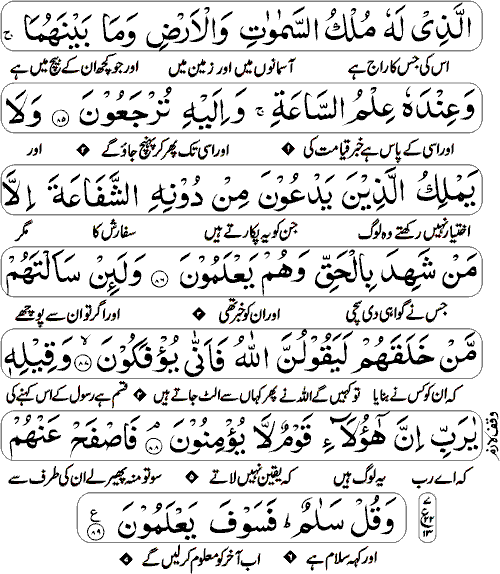 الَّذِىْ لَهٗ مُلْكُ السَّمٰوٰتِ وَالْاَرْضِ وَمَا بَيْنَهُمَا ۚ
اس کی جس کا راج ہے آسمانوں میں اور زمین میں اور جو کچھ ان کے بیچ میں ہے
وَعِنْدَهٗ عِلْمُ السَّاعَةِ ۚ وَاِلَيْهِ تُرْجَعُوْنَ ﴿۸۵﴾ وَلَا
اور اسی کے پاس ہے خبر قیامت کی اور اسی تک پھر کر پہنچ جاؤ گے اور
يَمْلِكُ الَّذِيْنَ يَدْعُوْنَ مِنْ دُوْنِهِ الشَّفَاعَةَ اِلَّا
اختیار نہیں رکھتے وہ لوگ جن کو یہ پکارتے ہیں سفارش کا مگر
مَنْ شَهِدَ بِالْحَقِّ وَهُمْ يَعْلَمُوْنَ ﴿۸۶﴾ وَلَئِنْ سَاَلْتَهُمْ
جس نے گواہی دی سچی اور ان کو خبر تھی اور اگر تو ان سے پوچھے
مَّنْ خَلَقَهُمْ لَيَقُوْلُنَّ اللّٰهُ فَاَنّٰى يُؤْفَكُوْنَ ﴿۸۷﴾ وَقِيْلِهٖ
کہ ان کو کس نے بنایا تو کہیں گے اللہ نے پھر کہاں سے الٹ جاتے ہیں قسم ہے رسول کے اس کہنے کی
يٰرَبِّ اِنَّ هٰٓؤُلَآءِ قَوْمٌ لَّا يُؤْمِنُوْنَ ﴿۸۸﴾ فَاصْفَحْ عَنْهُمْ
وقف لازم
کہ اے رب یہ لوگ ہیں کہ یقین نہیں لاتے سو تو منہ پھیر لے ان کی طرف سے
وَقُلْ سَلٰمٌ ؕ فَسَوْفَ يَعْلَمُوْنَ ﴿۸۹﴾ ع
اور کہہ سلام ہے اب آخر کو معلوم کر لیں گے